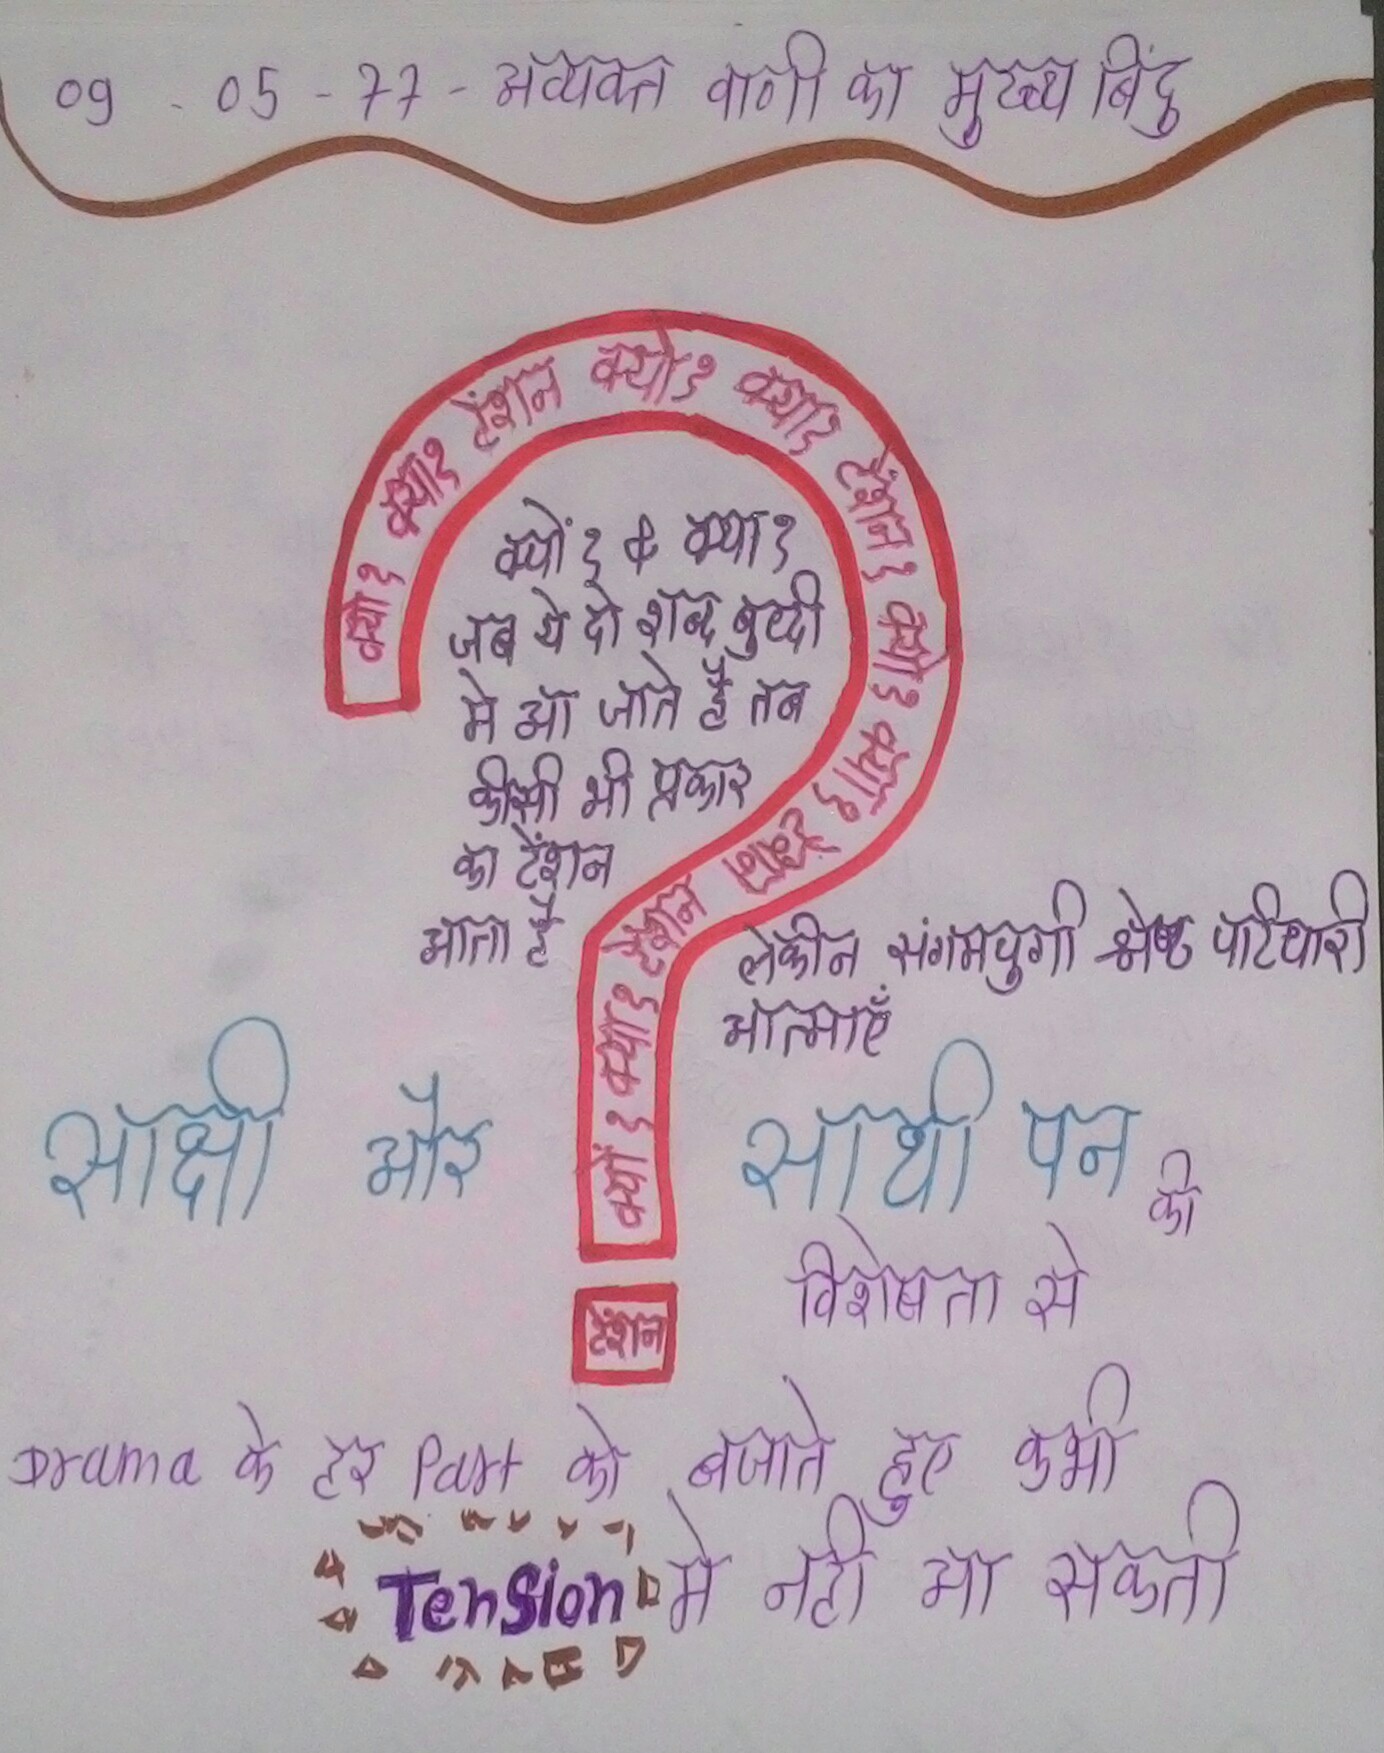 09 - 05 - 77 - अव्यक्त वाणी का मुख्य बिंदु
क्यों? क्या? टेंशन क्यों? क्या? टेंशन? क्यों? क्या? टेंशन क्या? क्यों?
टेंशन
क्यों? & क्या?
जब ये दो शब्द बुध्दी
मे आ जाते है तब
कीसी भी प्रकार
का टेंशन
आता है
लेकीन संगमयुगी श्रेष्ठ पार्टधारी
आत्माएँ
साक्षी और साथी पन की
विशेषता से
Drama के हर Part को बजाते हुए कभी
Tension मे नही आ सकती